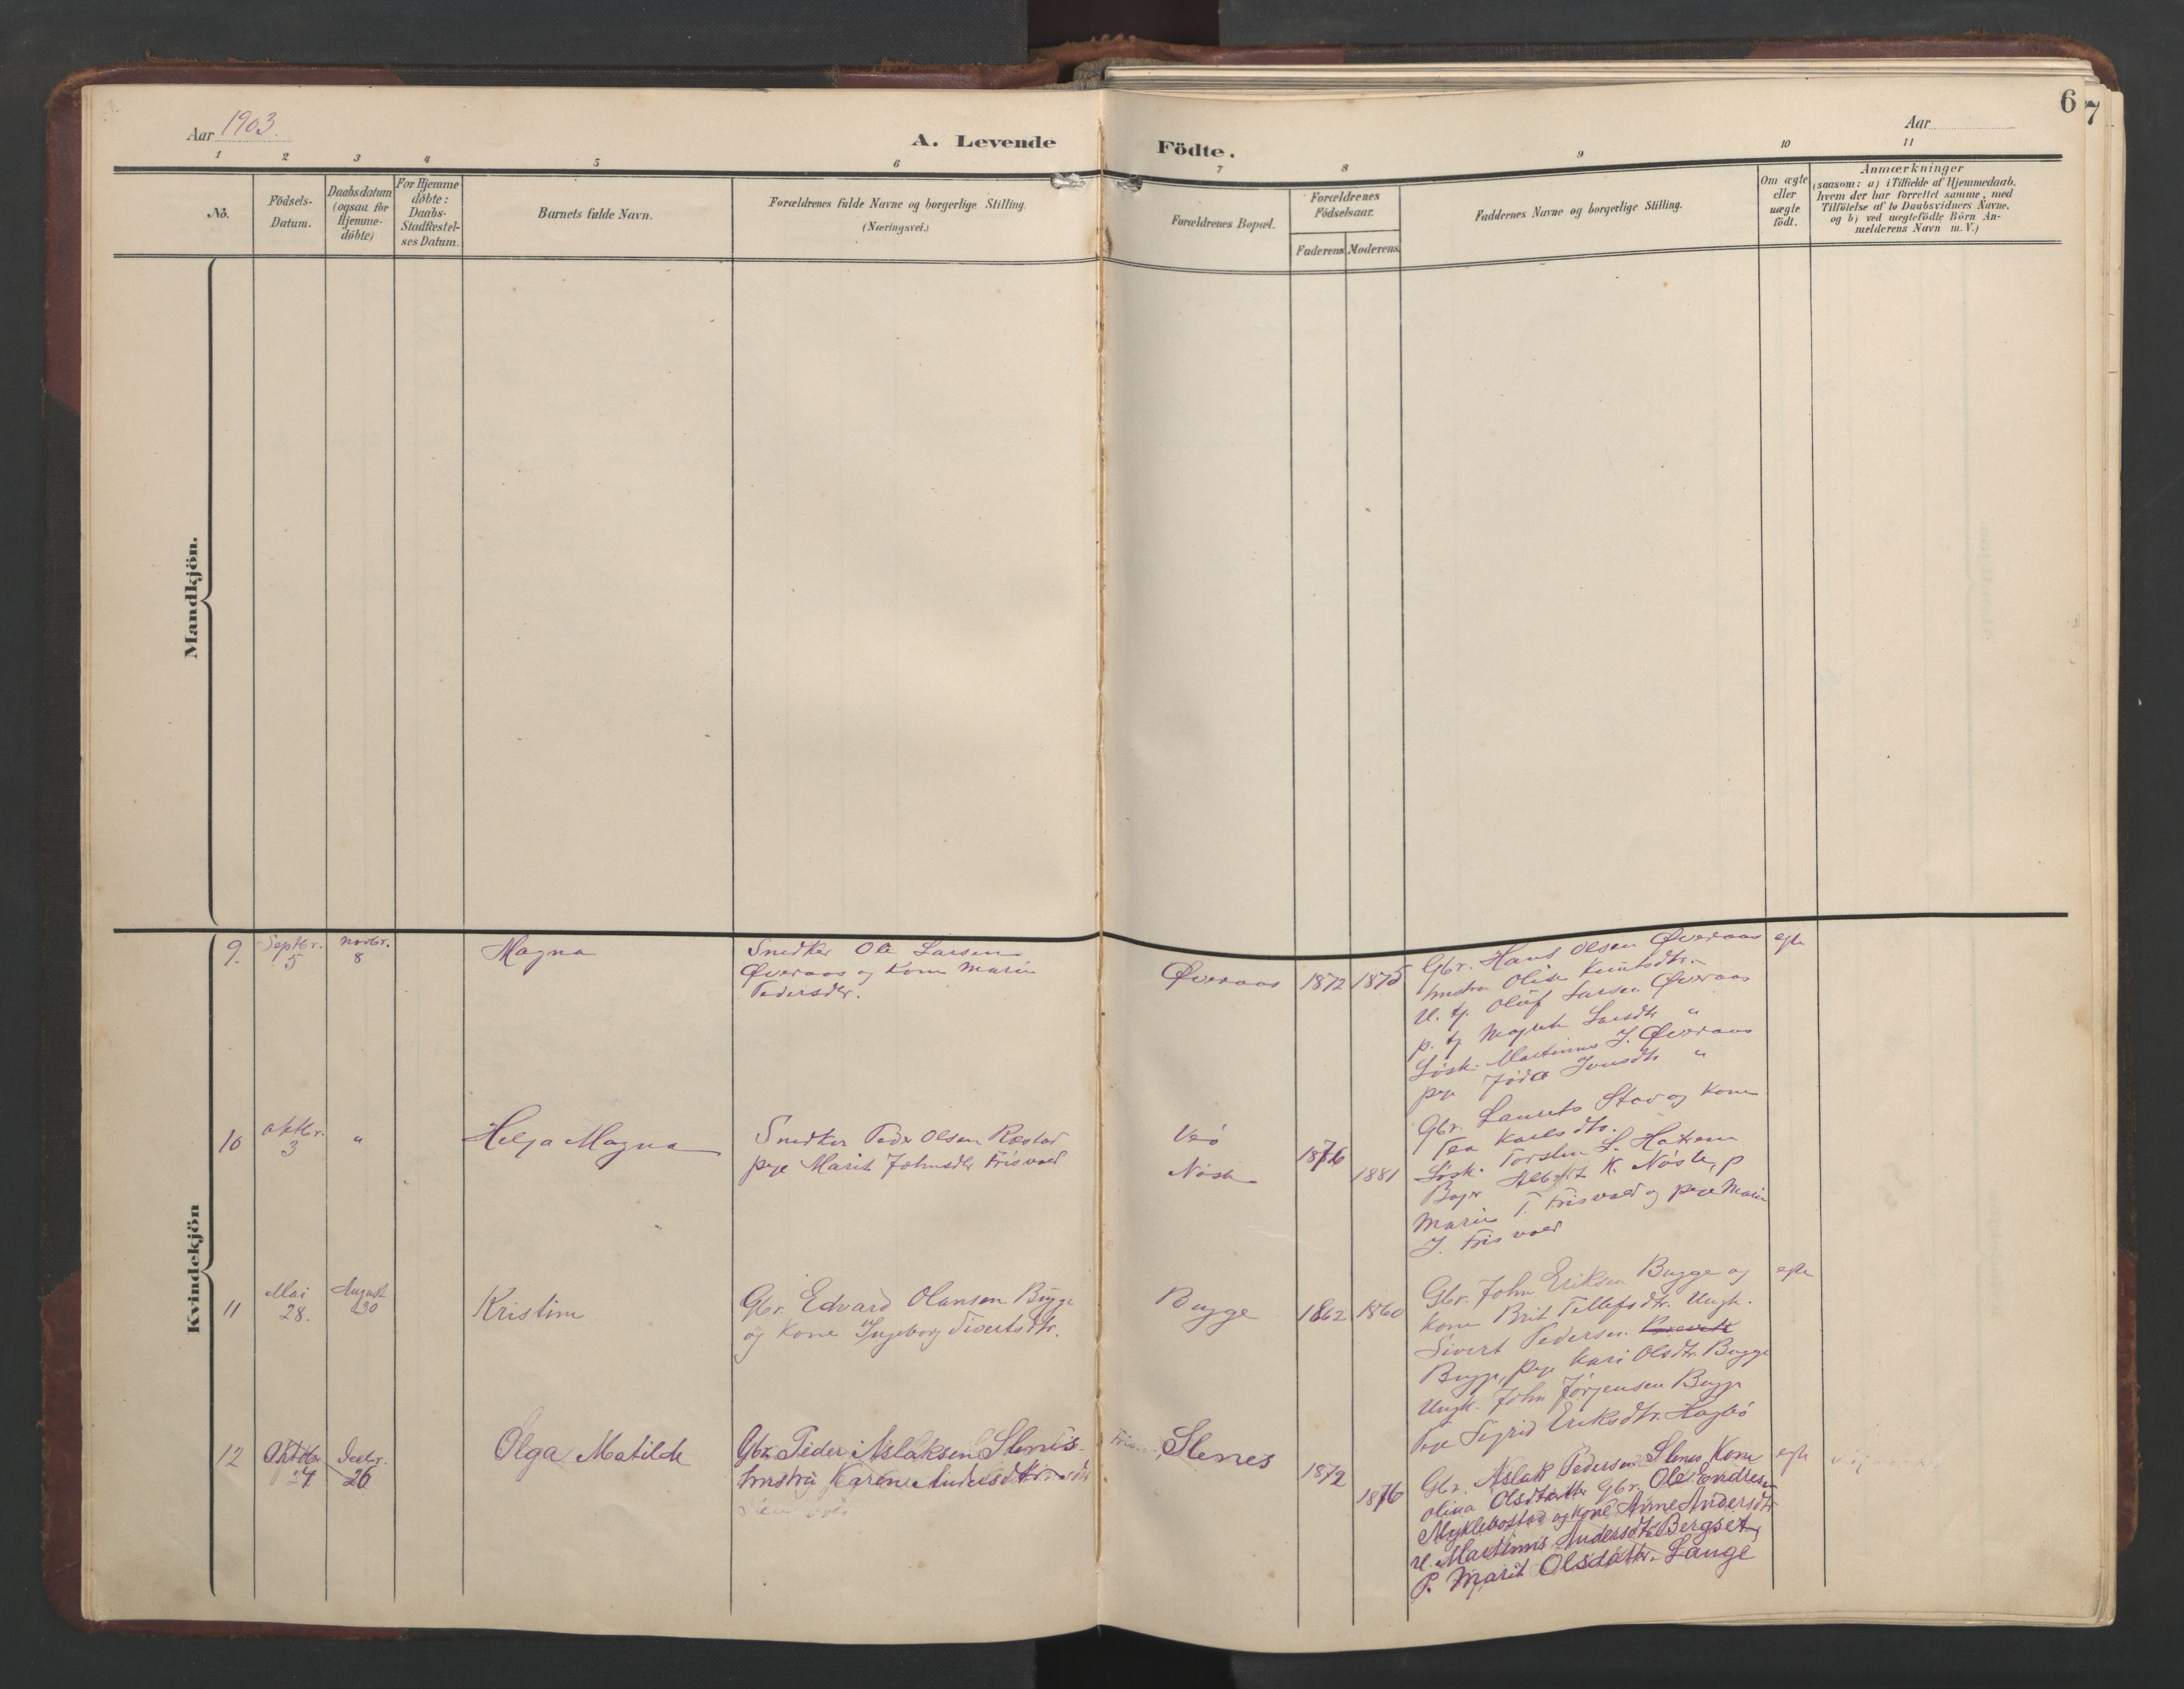 Aar 1903.
A. Levende
Födte.
Aar
6
7
1
2
3
4
5
6
7
8
9
10
11
Nö.
Födsels-
Datum.
Daabsdatum
(ogsaa for
Hjemme-
döbte)
For Hjemme
döbte:
Daabs-
Stadfæstel-
ses Datum.
Barnets fulde Navn.
Forældrenes fulde Navne og borgerlige Stilling.
(Næringsvei.)
Forældrenes Bopæl.
Forældrenes
Födselsaar.
Faderens
Moderens
Faddernes Navne og borgerlige Stilling.
Om ægte
eller
uægte
födt.
Anmærkninger
(saasom: a) i Tilfælde af Hjemmedaab,
hvem der har forrettet samme, med
Tilföielse af to Daabsvidners Navne,
og b) ved uægtefödte Börn An-
melderens Navn m. V.)
Mandkjön.
Kvindekjön
9.
Septbr.
5
Novbr.
8
Magna
Snedker Ole Larsen
Øveraas og Kone Marie
Pedersdtr.
Øveraas
1872
1875
Gbr. Hans Olsen Øveraas
Hustru Olise Knutsdtr.
U. tj. Oluf Larsen Øveraas
p. tj Magrete Larsdtr "
Løsk. Martinus J. Øveraas
pige Jonsdtr "
egte
10
Oktbr.
3
"
Helga Magna
Snedker Peder Olsen Røstad
pige Marit Johnsdtr Frisvold
Veö
Nöste
1876
1881
Gbr. Laurits Stav og Kone
Tea Karlsdtr.
Løsk. Torsten L. Hatlem
Albert K. Nöste, p
Marie T. Frisvold og pige Marie
J. Frisvold
11
Mai
28.
August
30
Kristine
Gbr. Edvard Olansen Bugge
og Kone Ingeborg Sivertsdtr.
Bugge
1862
1860
Gbr. John Eriksen Bugge og
Kone Brit Tellefsdtr. Ungk.
Sivert Pedersen
Bugge, Pige Kari Olsdtr. Bugge
Ungk. John Jörgensen Bugge
Pige Sigrid Eriksdtr. Hagbö
egte
12
Oktbr.
24
Decbr.
26
Olga Matilde
Gbr. Peder Aslaksen Slenes
hustru Karen Andersdtr
Slenes
1872
1876
Gbr. Aslak Pedersen Slenes Kone
Olina Olsdatter Gbr. Ole Endresen
Myklebostad og Kone Anne Andersdtr
U. Martinus Andersdtr Bergset,
P. Marit Olsdattr. Lange
egte